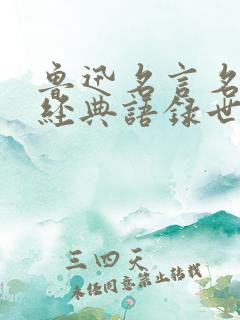 魯迅名言名
經典語録世
三四天
未经同意禁止转载